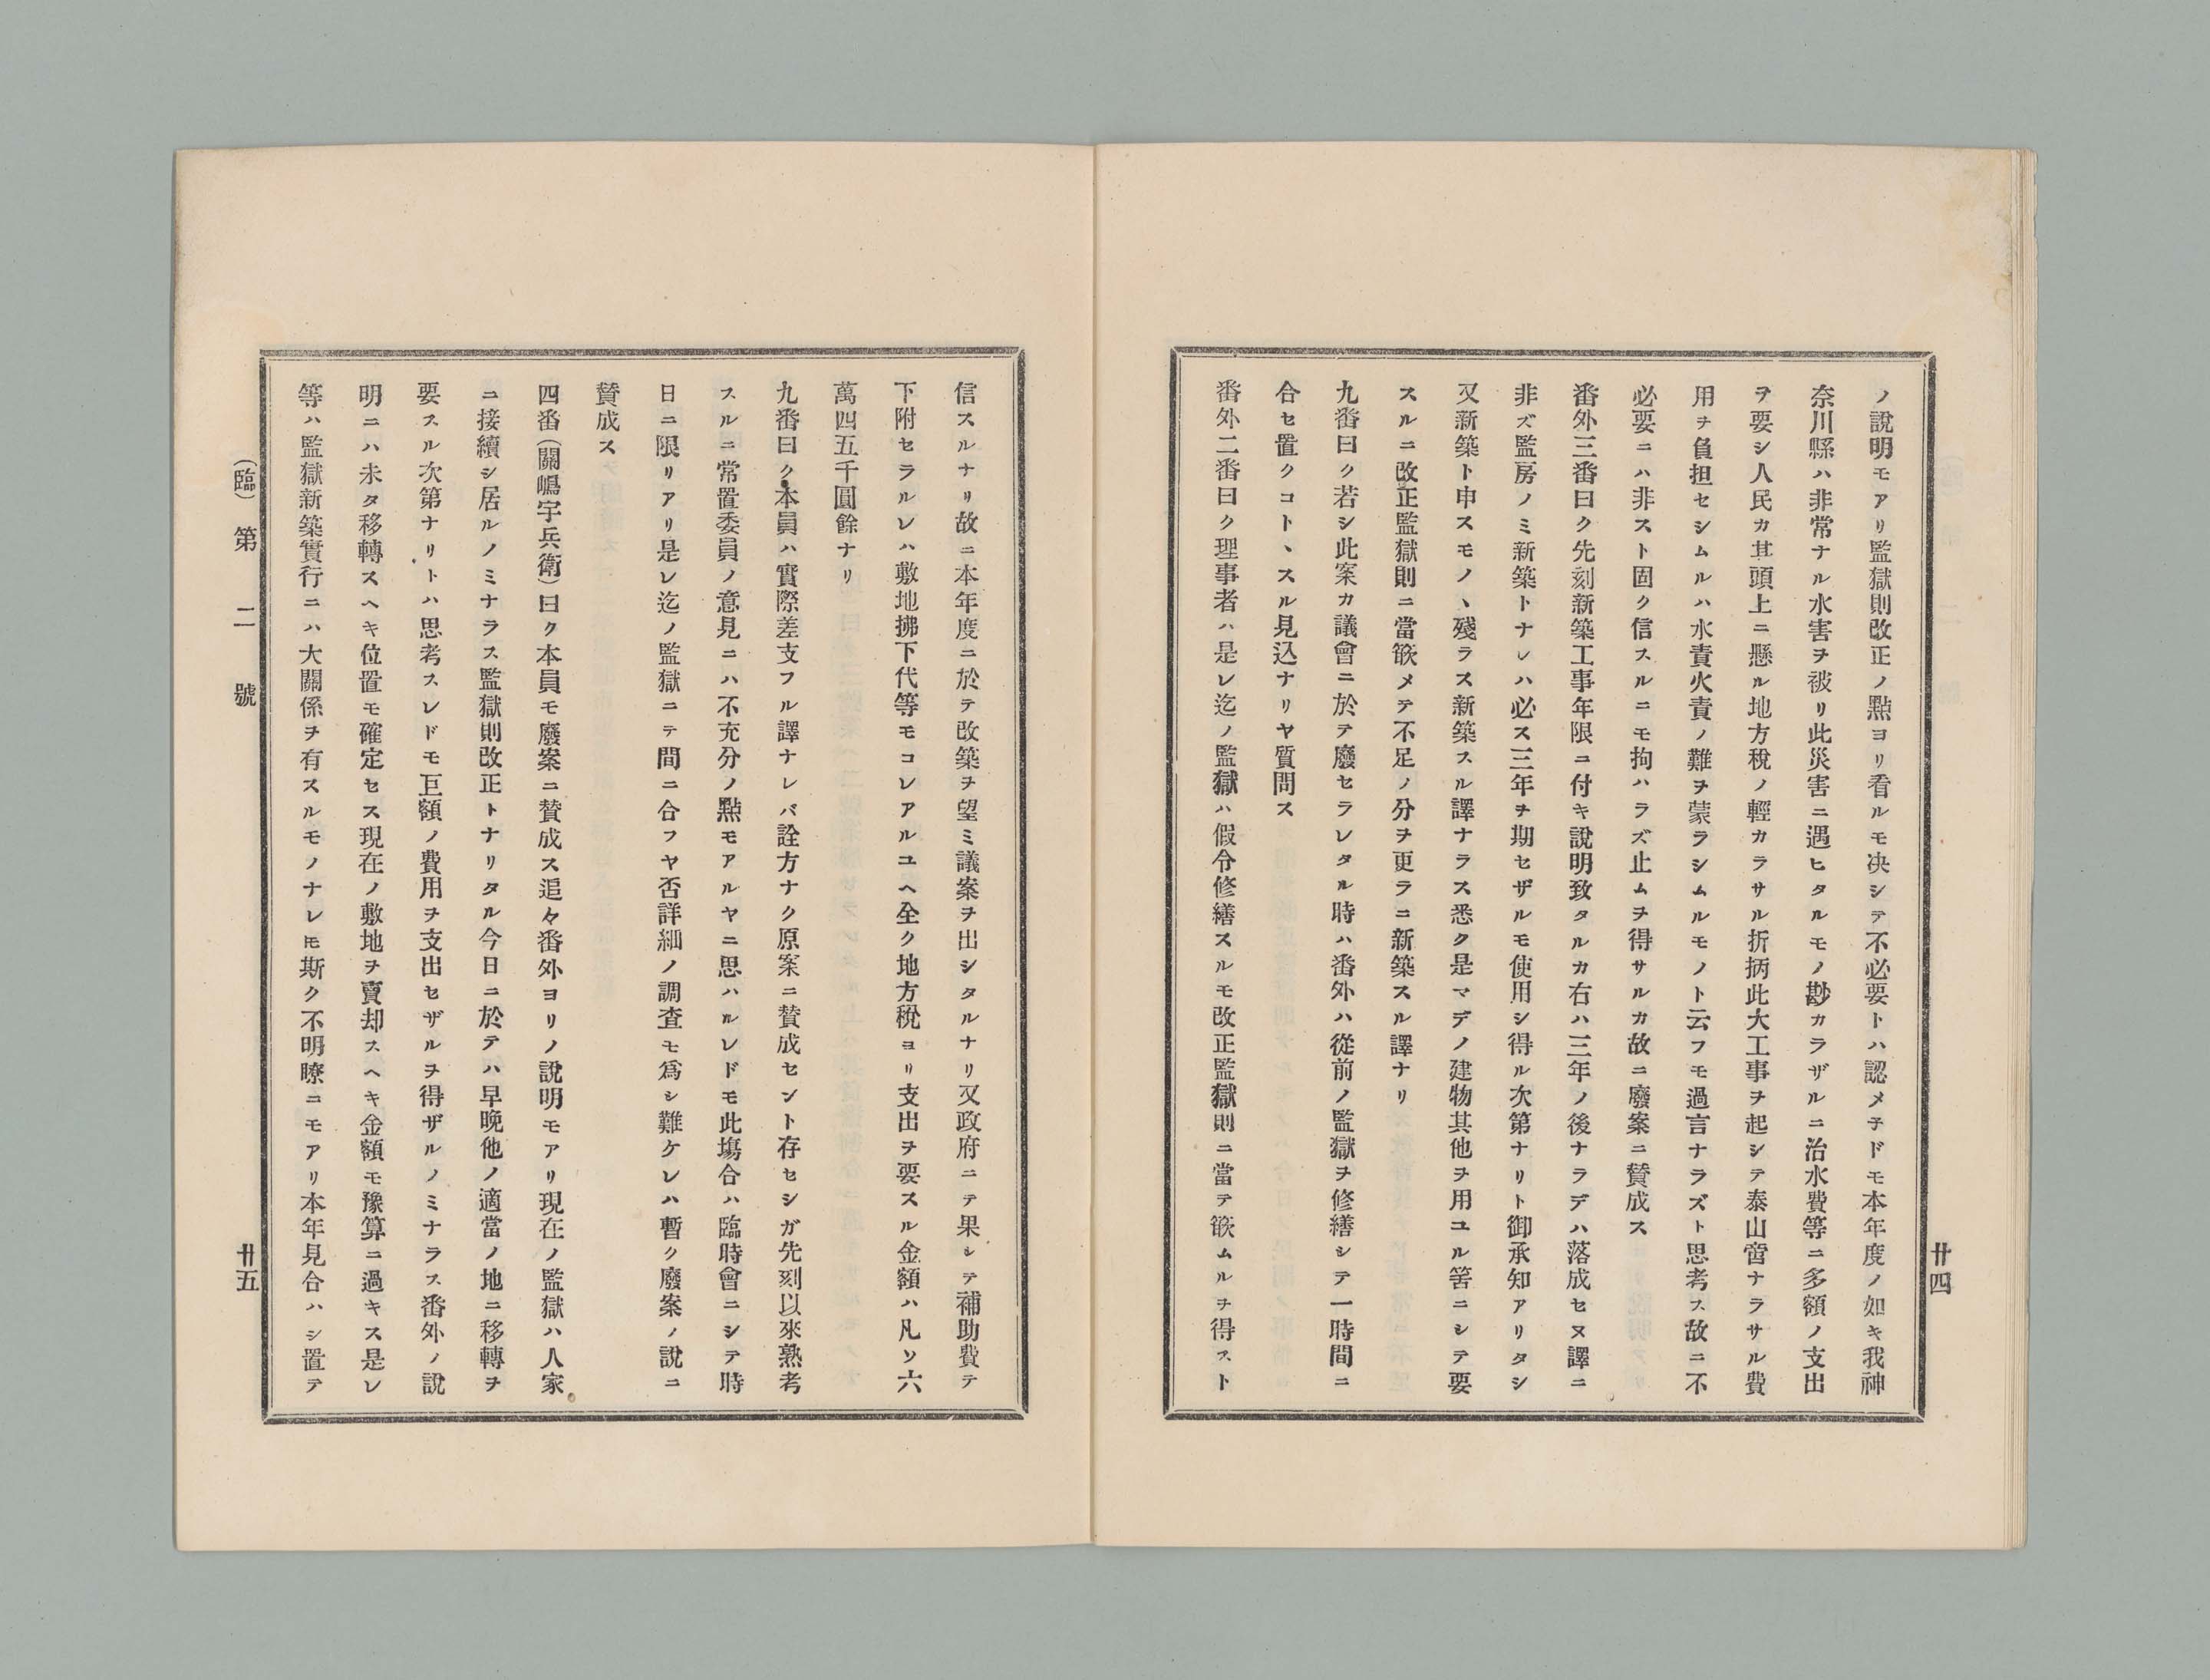 ノ說明モアリ監獄則改正ノ點ヨリ看ルモ决シテ不必要トハ認メ子ドモ本年度ノ如キ我神
奈川縣ハ非常ナル水害ヲ被リ此災害ニ遇ヒタルモノ尠カラザルニ治水費等ニ多額ノ支出
ヲ要シ人民カ其頭上ニ懸ル地方稅ノ輕カラサル折抦此大工事ヲ起シテ泰山啻ナラサル費
用ヲ負担セシムルハ水責火責ノ難ヲ蒙ラシムルモノト云フモ過言ナラズト思考ス故ニ不
必要ニハ非スト固ク信スルニモ拘ハラズ止ムヲ得サルカ故ニ廢案ニ賛成ス
番外三番曰ク先刻新築工事年限ニ付キ說明致タルカ右ハ三年ノ後ナラデハ落成セヌ譯ニ
非ズ監房ノミ新築トナレハ必ス三年ヲ期セザルモ使用シ得ル次第ナリト御承知アリタシ
又新築ト申スモノヽ殘ラス新築スル譯ナラス悉ク是マデノ建物其他ヲ用ユル筈ニシテ要
スルニ改正監獄則ニ當篏メテ不足ノ分ヲ更ラニ新築スル譯ナリ
九番曰ク若シ此案カ議會ニ於テ廢セラレタル時ハ番外ハ從前ノ監獄ヲ修繕シテ一時間ニ
合セ置クコトヽスル見込ナリヤ質問ス
番外二番曰ク理事者ハ是レ迄ノ監獄ハ假令修繕スルモ改正監獄則ニ當テ篏ムルヲ得スト
廿四
信スルナリ故ニ本年度ニ於テ改築ヲ望ミ議案ヲ出シタルナリ又政府ニテ果シテ補助費テ
下附セラルレハ敷地拂下代等モコレアルユヘ全ク地方稅ヨリ支出ヲ要スル金額ハ凡ソ六
萬四五千圓餘ナリ
九番曰ク本員ハ實際差支フル譯ナレバ詮方ナク原案ニ賛成セント存セシガ先刻以來熟考
スルニ常置委員ノ意見ニハ不充分ノ點モアルヤニ思ハルレドモ此塲合ハ臨時會ニシテ時
日ニ限リアリ是レ迄ノ監獄ニテ間ニ合フヤ否詳細ノ調査モ爲シ難ケレハ暫ク廢案ノ說ニ
賛成ス
四番（關嶋宇兵衛）曰ク本員モ廢案ニ賛成ス追々番外ヨリノ說明モアリ現在ノ監獄ハ人家
ニ接續シ居ルノミナラス監獄則改正トナリタル今日ニ於テハ早晚他ノ適當ノ地ニ移轉ヲ
要スル次第ナリトハ思考スレドモ巨額ノ費用ヲ支出セザルヲ得ザルノミナラス番外ノ說
明ニハ未タ移轉スヘキ位置モ確定セス現在ノ敷地ヲ賣却スヘキ金額モ豫算ニ過キス是レ
等ハ監獄新築實行ニハ大關係ヲ有スルモノナレ𪜈斯ク不明瞭ニモアリ本年見合ハシ置テ
（臨）第二號
廿五